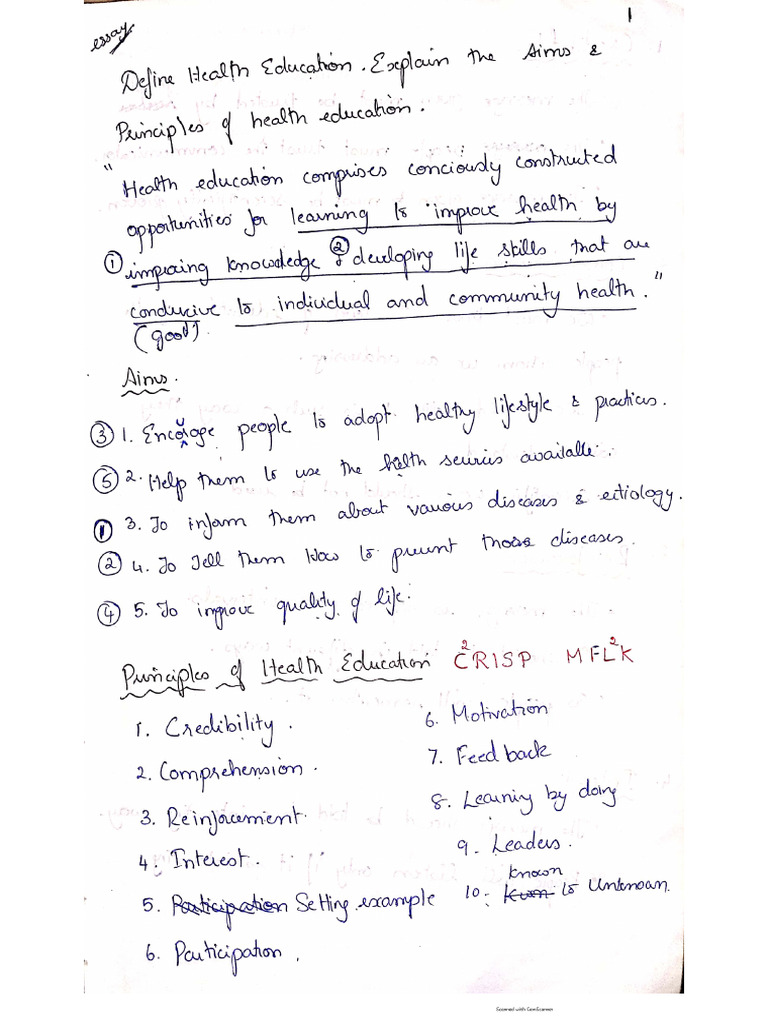 essay
1
Define Health Education. Explain the Aims &
Principles of health education.
"Health education comprises conciously constructed
opportunities for learning to improve health by
① improving knowledge & ② developing life skills that are
conducive to individual and community health."
(good).
Aims.
③ 1. Encourage people to adopt healthy lifestyle & practices.
⑤ 2. Help them to use the helth seuries available.
① 3. To inform them about various diseases & eitiology.
② 4. To Tell them How to prevent those diseases.
④ 5. To improve quality of life.
Principles of Health Education C²RISP MFL²K
1. Credibility.
2. Comprehension.
3. Reinforcement.
4. Interest.
5. Participation Setting example
6. Participation.
6. Motivation
7. Feed back
8. Learning by doing
9. Leaders.
known
10. to Unknown.
Scanned with CamScanner